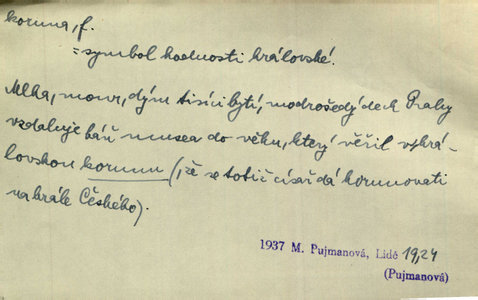 koruna, f.
= symbol hodnosti královské.
Mlha, mour, dým tisíci bytí, modrošedý dech Prahy
vzdaluje báň musea do věku, který věřil v krá-
lovskou korunu (, že se totiž císař dá korunovati
na krále Českého).
1937 M. Pujmanová, Lidé 19,24
(Pujmanová)